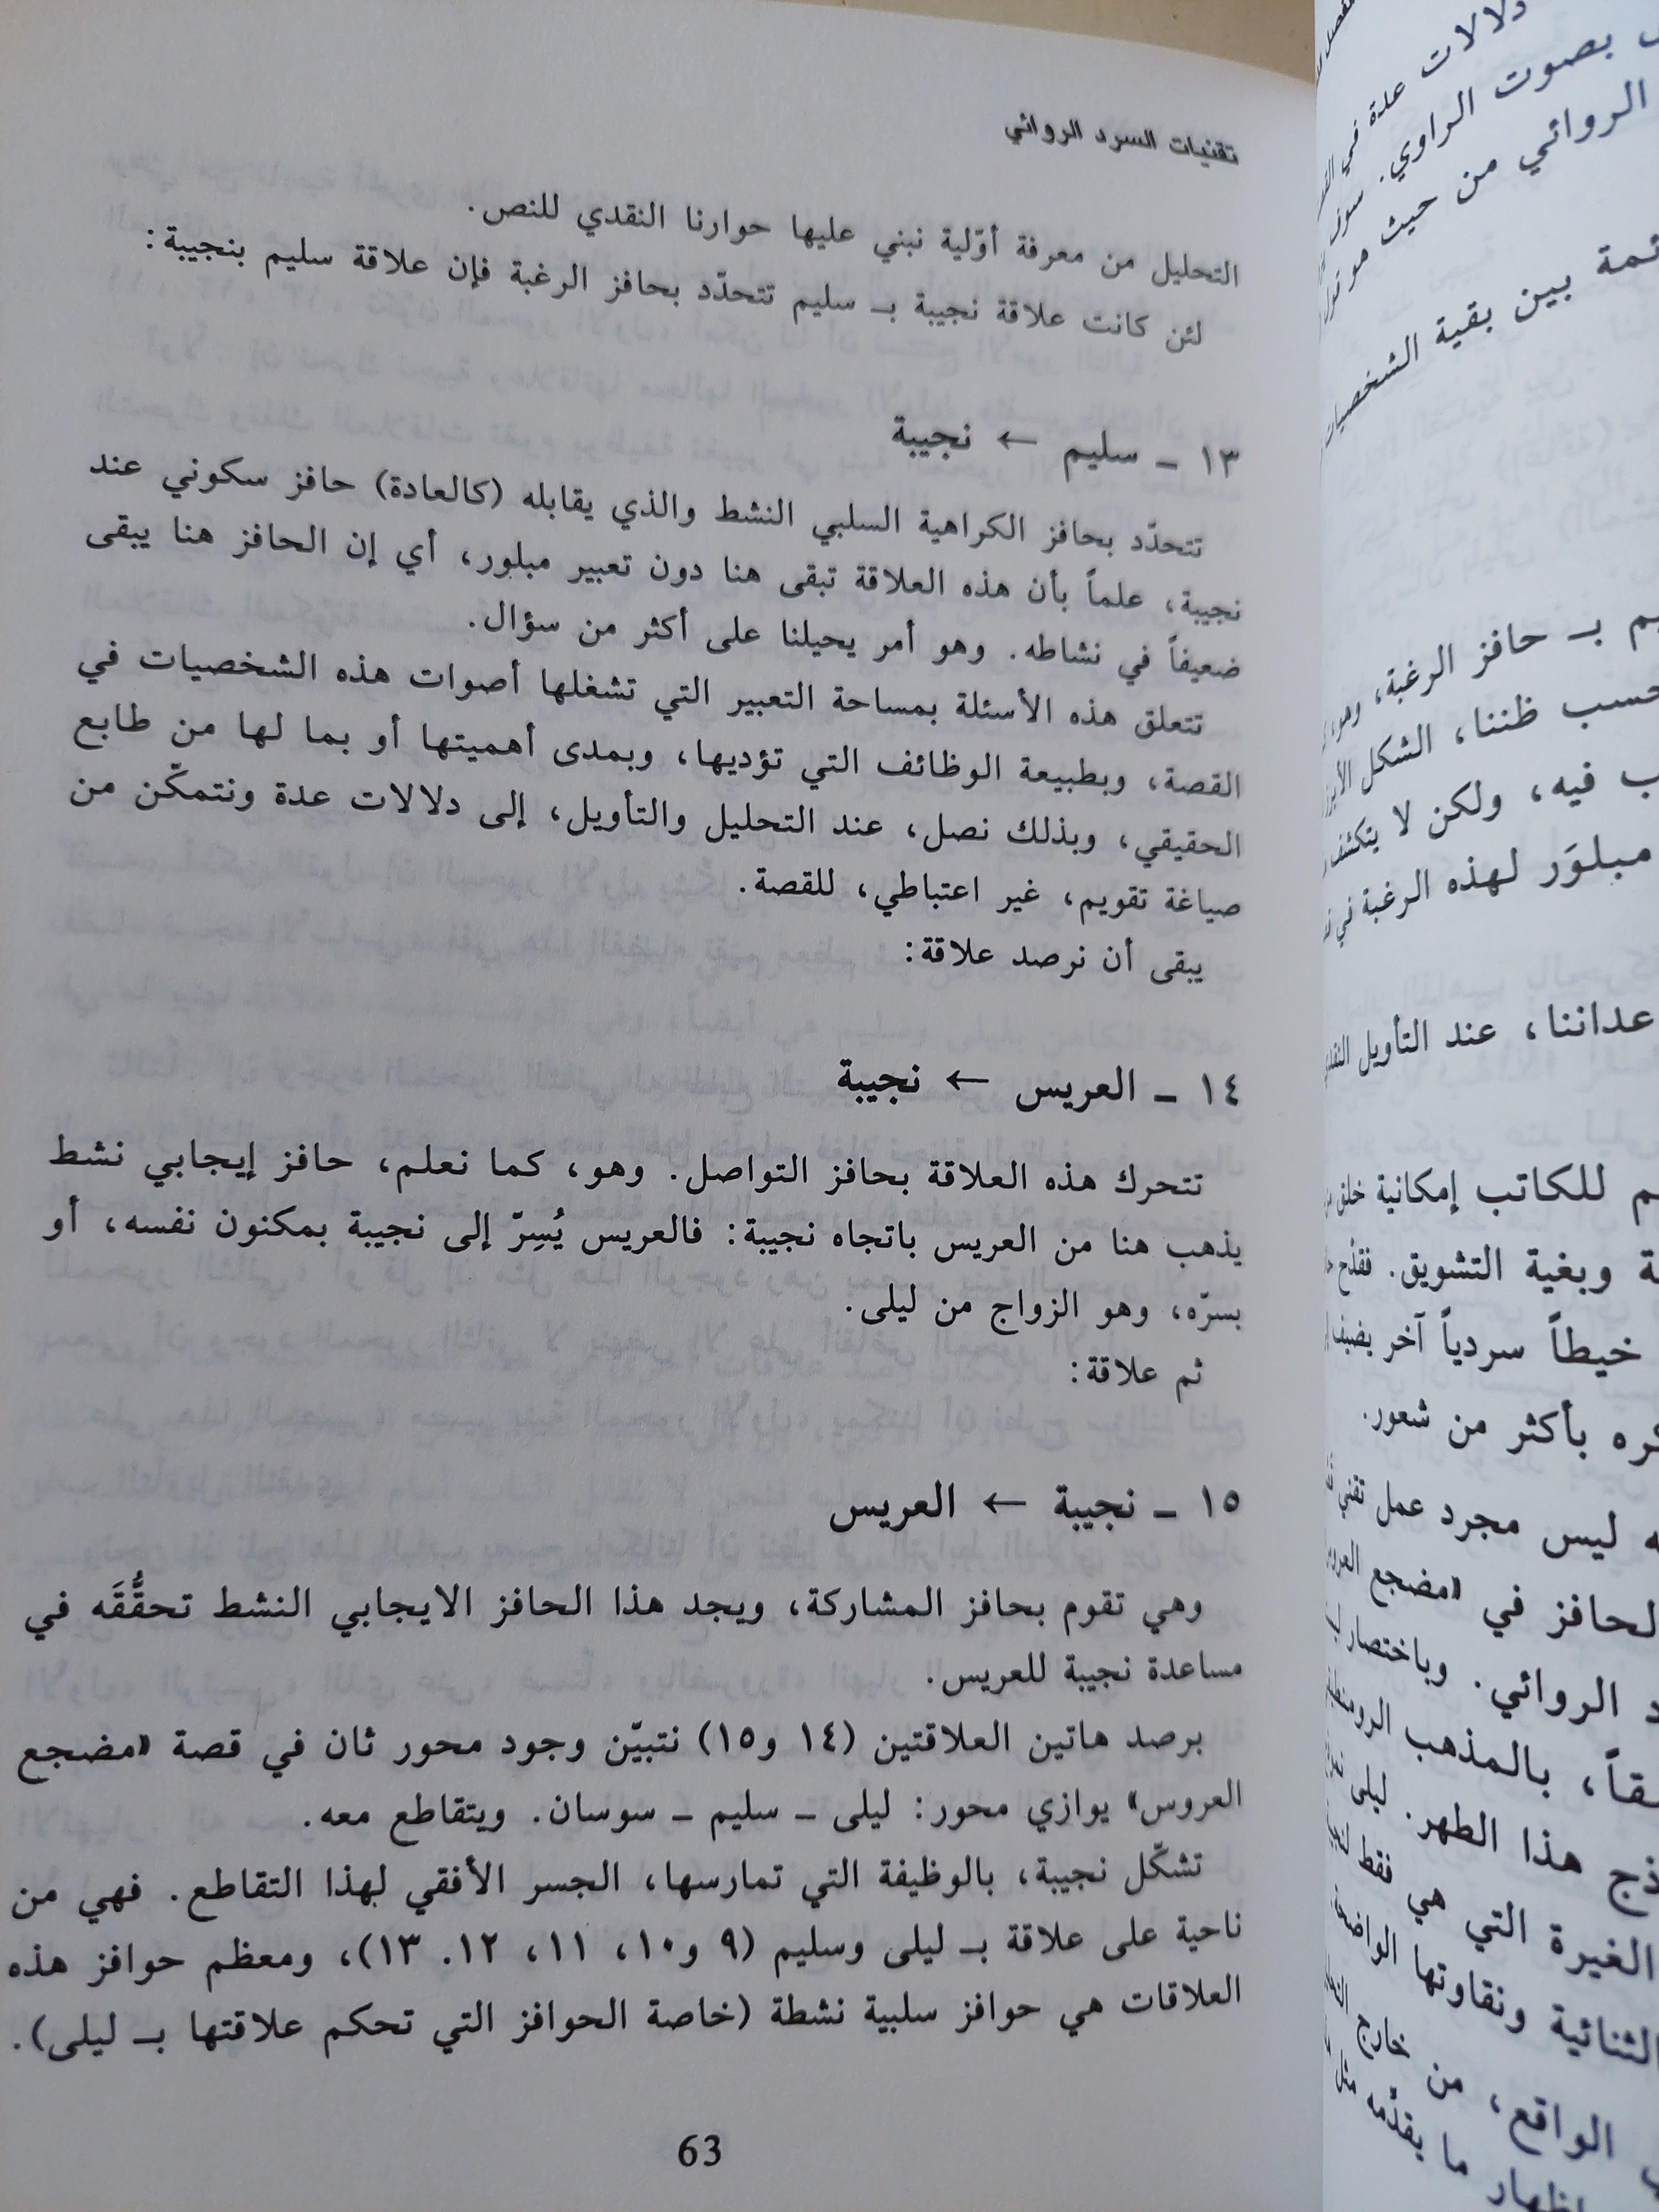 تقنيات السرد الروائي
التحليل من معرفة أوّلية نبني عليها حوارنا النقدي للنص.
لئن كانت علاقة نجيبة بـ سليم تتحدّد بحافز الرغبة فإن علاقة سليم بنجيبة:
١٣ ـ سليم ← نجيبة
تتحدّد بحافز الكراهية السلبي النشط والذي يقابله (كالعادة) حافز سكوني عند
نجيبة، علماً بأن هذه العلاقة تبقى هنا دون تعبير مبلور، أي إن الحافز هنا يبقى
ضعيفاً في نشاطه. وهو أمر يحيلنا على أكثر من سؤال.
تتعلق هذه الأسئلة بمساحة التعبير التي تشغلها أصوات هذه الشخصيات في
القصة، وبطبيعة الوظائف التي تؤديها، وبمدى أهميتها أو بما لها من طابع
الحقيقي، وبذلك نصل، عند التحليل والتأويل، إلى دلالات عدة ونتمكّن من
صياغة تقويم، غير اعتباطي، للقصة.
يبقى أن نرصد علاقة:
١٤ ـ العريس ← نجيبة
تتحرك هذه العلاقة بحافز التواصل. وهو، كما نعلم، حافز إيجابي نشط
يذهب هنا من العريس باتجاه نجيبة: فالعريس يُسِرّ إلى نجيبة بمكنون نفسه، أو
بسرّه، وهو الزواج من ليلى.
ثم علاقة:
١٥ ـ نجيبة ← العريس
وهي تقوم بحافز المشاركة، ويجد هذا الحافز الايجابي النشط تحقُّقَه في
مساعدة نجيبة للعريس.
برصد هاتين العلاقتين (١٤ و١٥) نتبيّن وجود محور ثان في قصة «مضجع
العروس» يوازي محور: ليلى ـ سليم ـ سوسان. ويتقاطع معه.
تشكّل نجيبة، بالوظيفة التي تمارسها، الجسر الأفقي لهذا التقاطع. فهي من
ناحية على علاقة بـ ليلى وسليم (٩ و١٠، ١١، ١٢. ١٣)، ومعظم حوافز هذه
العلاقات هي حوافز سلبية نشطة (خاصة الحوافز التي تحكم علاقتها بـ ليلى).
63
دلالات عدة في
بصوت الراوي. سوف
الروائي من حيث هو
بين بقية الشخصيات
بـ حافز الرغبة، وهو
حسب ظننا، الشكل
فيه، ولكن لا يتكشف
مبلوَر لهذه الرغبة في
عند التأويل
للكاتب إمكانية خلق
وبغية التشويق.
خيطاً سردياً آخر يضيف
بأكثر من شعور.
ليس مجرد عمل تقني
لحافز في «مضجع
الروائي. وباختصار
بالمذهب
هذا الطهر. ليلى
الغيرة التي هي فقط
الثنائية ونقاوتها
الواقع، من خارج
ما يقدّمه مثل